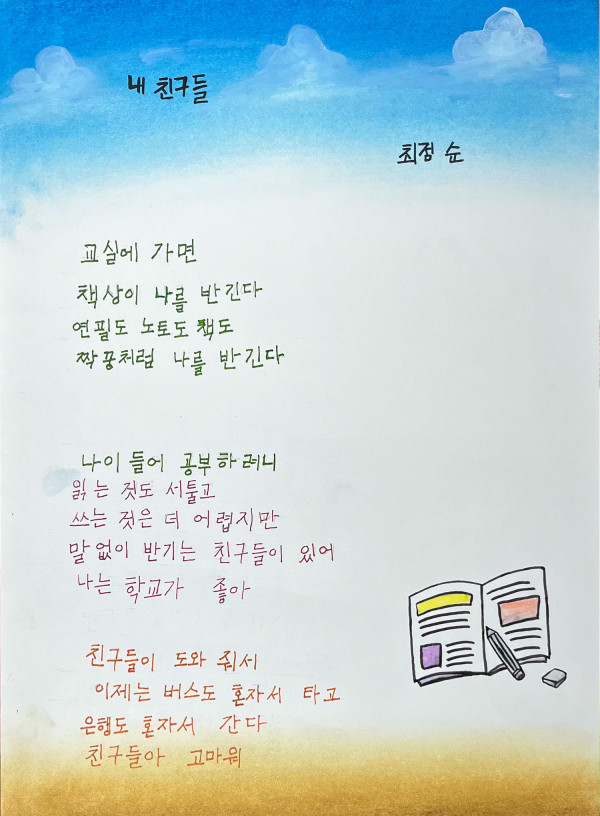 내 친구들
최정 순
교실에 가면
책상이 나를 반긴다
연필도 노토도 책도
짝꿍처럼 나를 반긴다
나이 들어 공부하려니
읽는 것도 서툴고
쓰는 것은 더 어렵지만
말없이 반기는 친구들이 있어
나는 학교가 좋아
친구들이 도와 줘서
이제는 버스도 혼자서 타고
은행도 혼자서 간다
친구들아 고마워